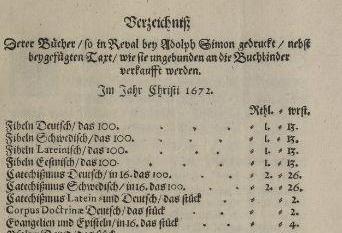 Verzeichniß
Derer Bücher / so in Reval bey Adolph Simon gedruckt / nebst
beygefügten Taxt / wie sie ungebunden an die Buchbinder
verkaufft werden.
Im Jahr Christi 1672.
Rthl. • wrst.
Fibeln Deutsch / das 100. • • • 1. • 13.
Fibeln Schwedisch / das 100. • • • 1. • 13.
Fibeln Lateinisch / das 100. • • • 1. • 13.
Fibeln Eestnisch / das 100. • • • 1. • 13.
Catechißmus Deutsch / in 16. das 100. • • 2. • 26.
Catechißmus Schwedisch / in 16. das 100. • • 2. • 26.
Catechißmus Latein • und Deutsch / das stück • • 2.
Corpus Doctrinæ Deutsch / das stück • • • 2.
Evangelien und Episteln / in 16. das stück • • • 4.